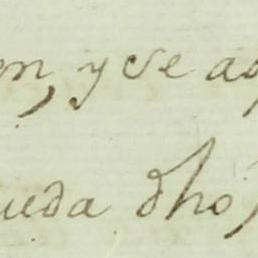 en, y se ag
ueda dho,